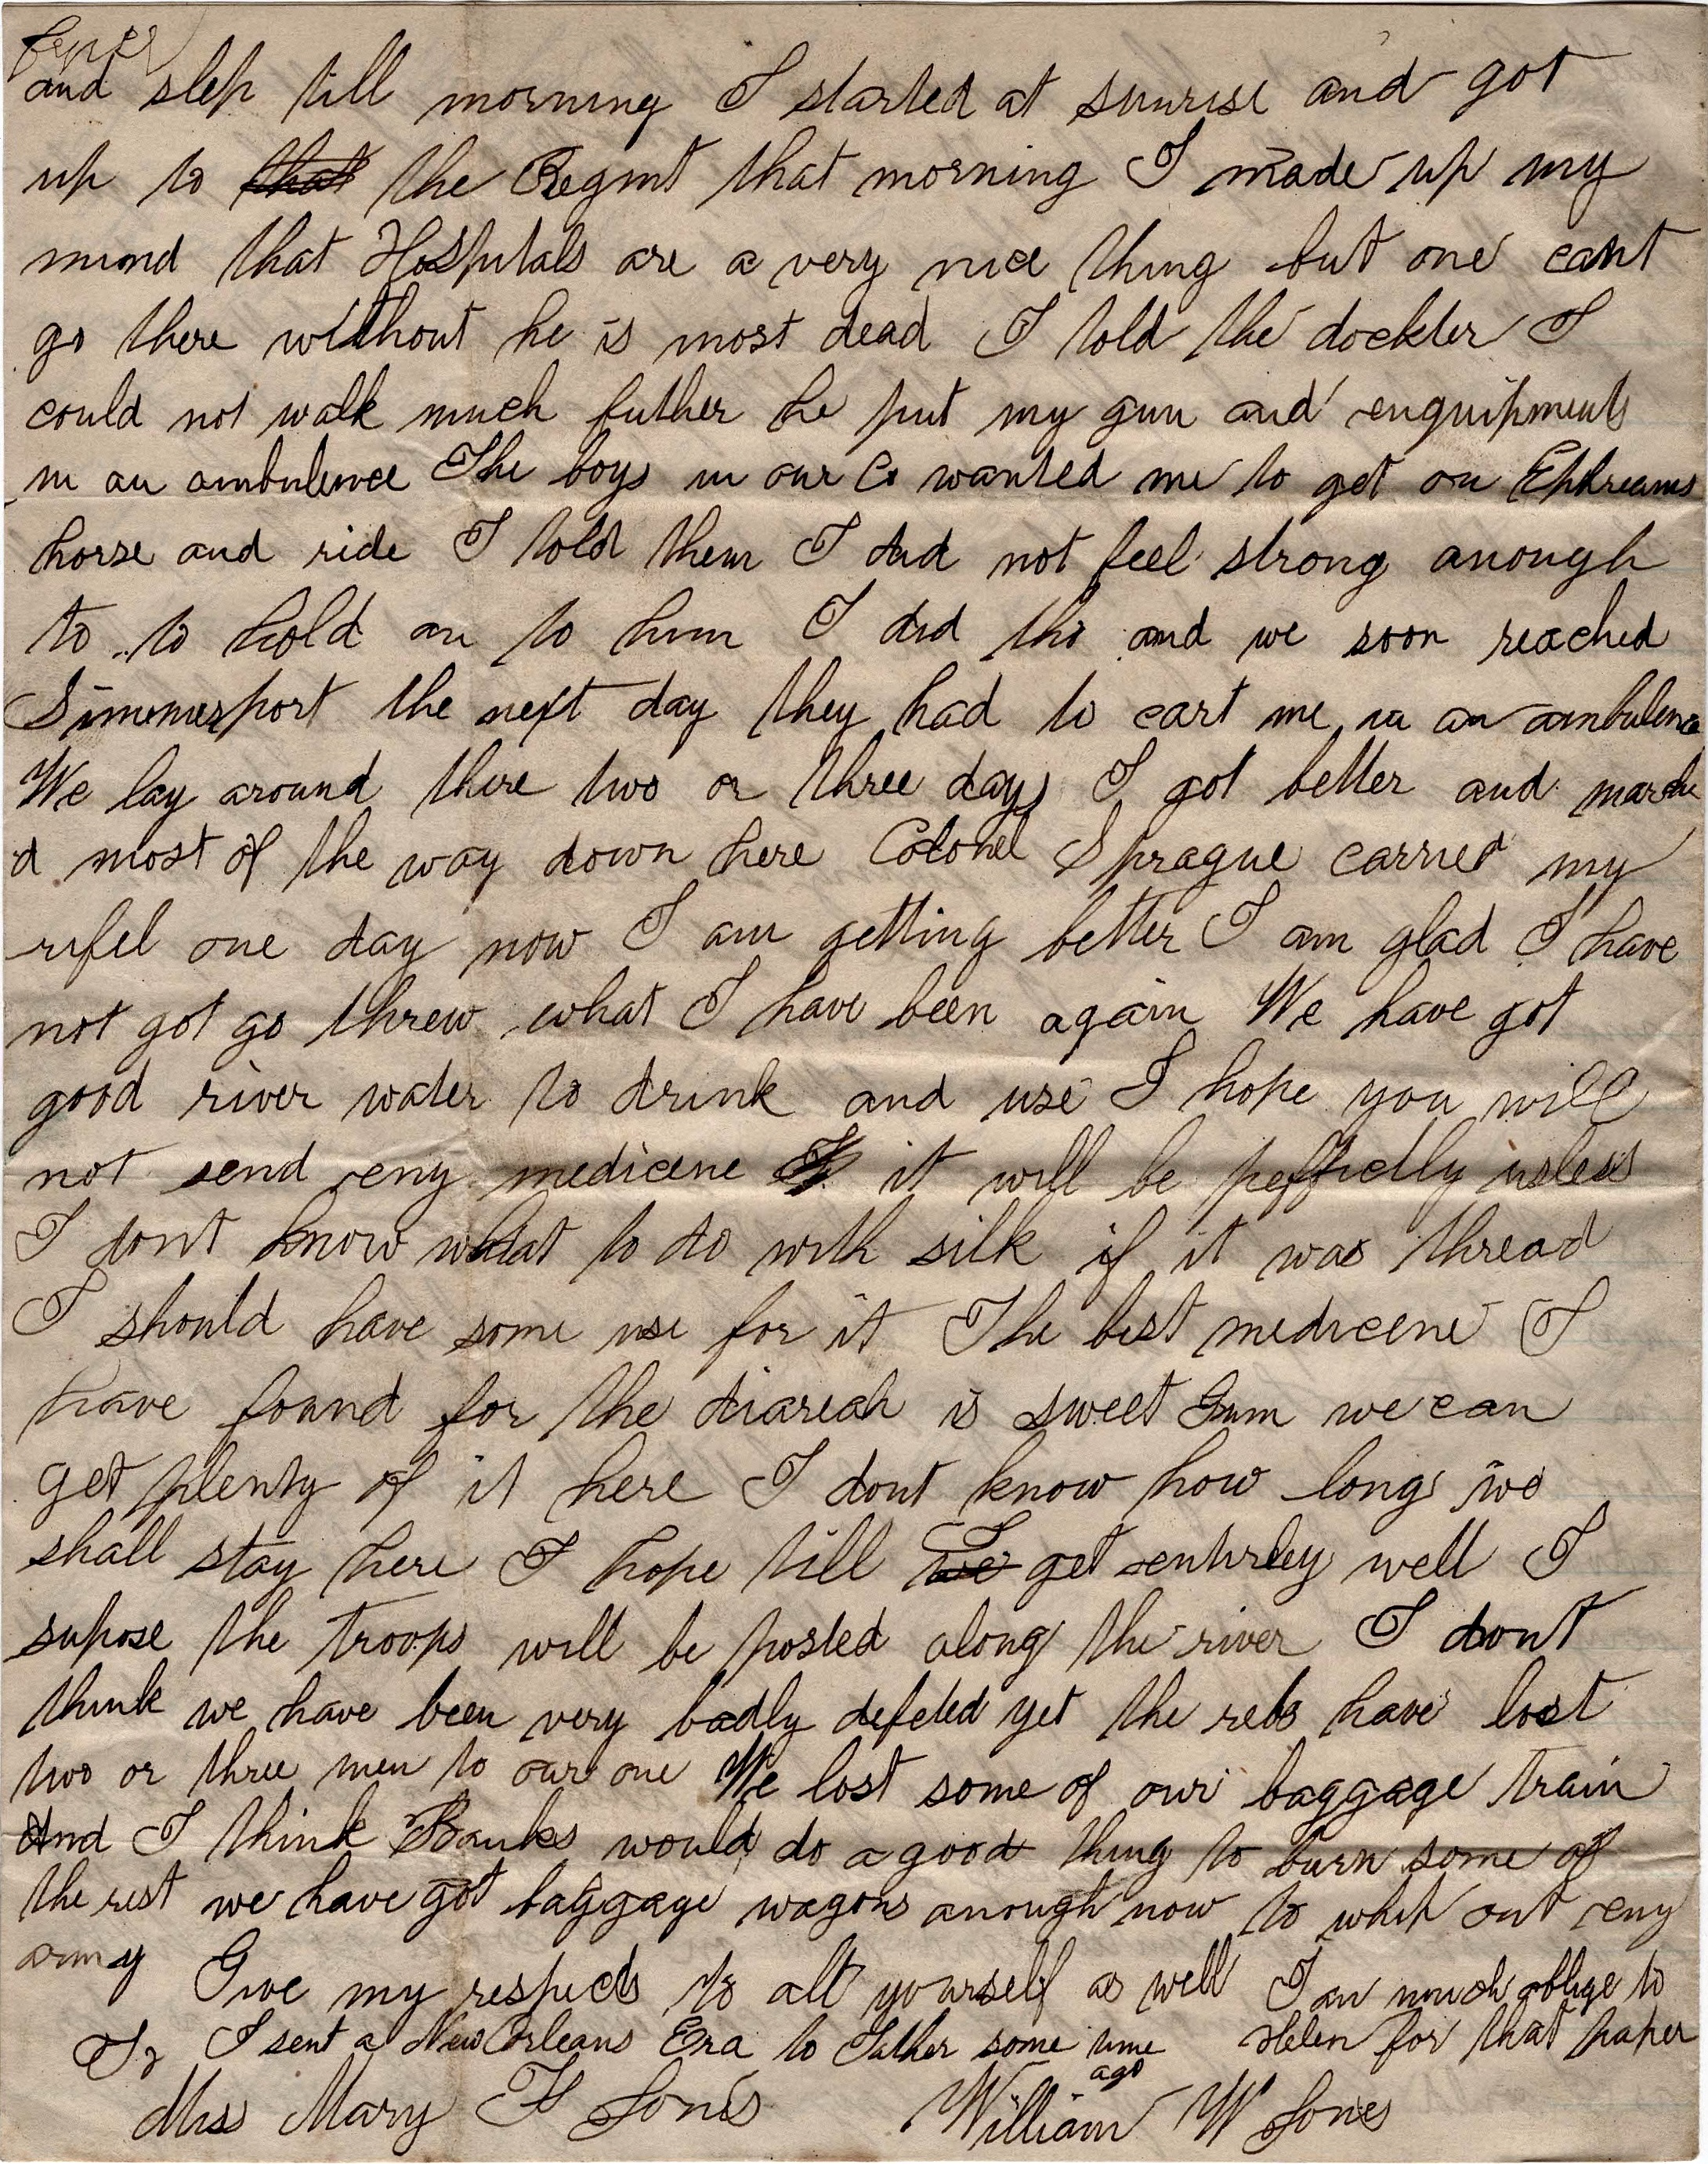 fever
and slep till morning I started at sunrise and got
up to that the Regmt that morning I made up my
mind that Hospitals are a very nice thing but one cant
go there without he is most dead I told the dockter I
could not walk much futher he put my gun and enquipments
in an ambulence The boys in our Co wanted me to get on Ephreams
horse and ride I told them I did not feel strong anough
to to hold on to him I did tho and we soon reached
Simmesport the next day they had to cart me in an ambulence
We lay around there two or three days I got better and marche
d most of the way down here Colonel Sprague carried my
rifel one day now I am getting better I am glad I have
not got go threw what I have been again We have got
good river water to drink and use I hope you will
not send eny medicene it will be peffictly usless
I dont know what to do with silk if it was thread
I should have some use for it The best medicene I
have found for the diareah is sweet Gum we can
get plenty of it here I dont know how long we
shall stay here I hope till we I get entirley well I
supose the troops will be posted along the river I dont
think we have been very badly defeted yet the rebs have lost
two or three men to our one We lost some of our baggage train
And I think Banks would do a good thing to burn some of
the rest we have got baggage wagons anough now to whip out eny
army Give my respects to all yourself as well I am much oblige to
To I sent a New Orleans Era to Father some time ago Helen for that paper
Mrs Mary F Jones William W Jones